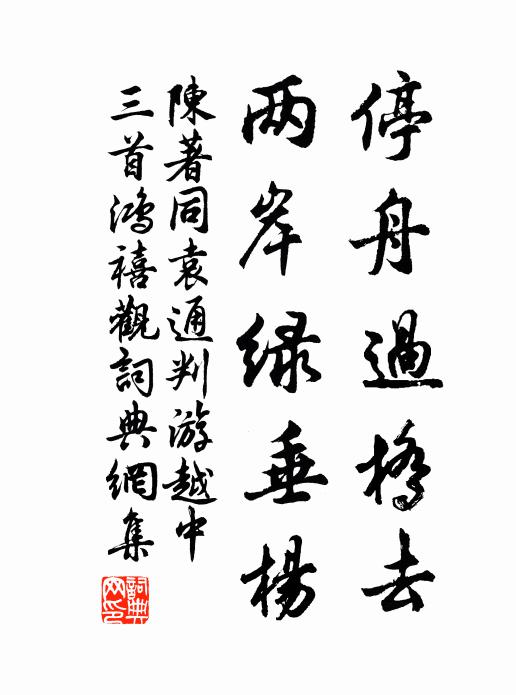 停舟過橋去
两岸绿垂楊
陳著同袁通判游越中
三首鴻禧觀詞典網集
詞典網印